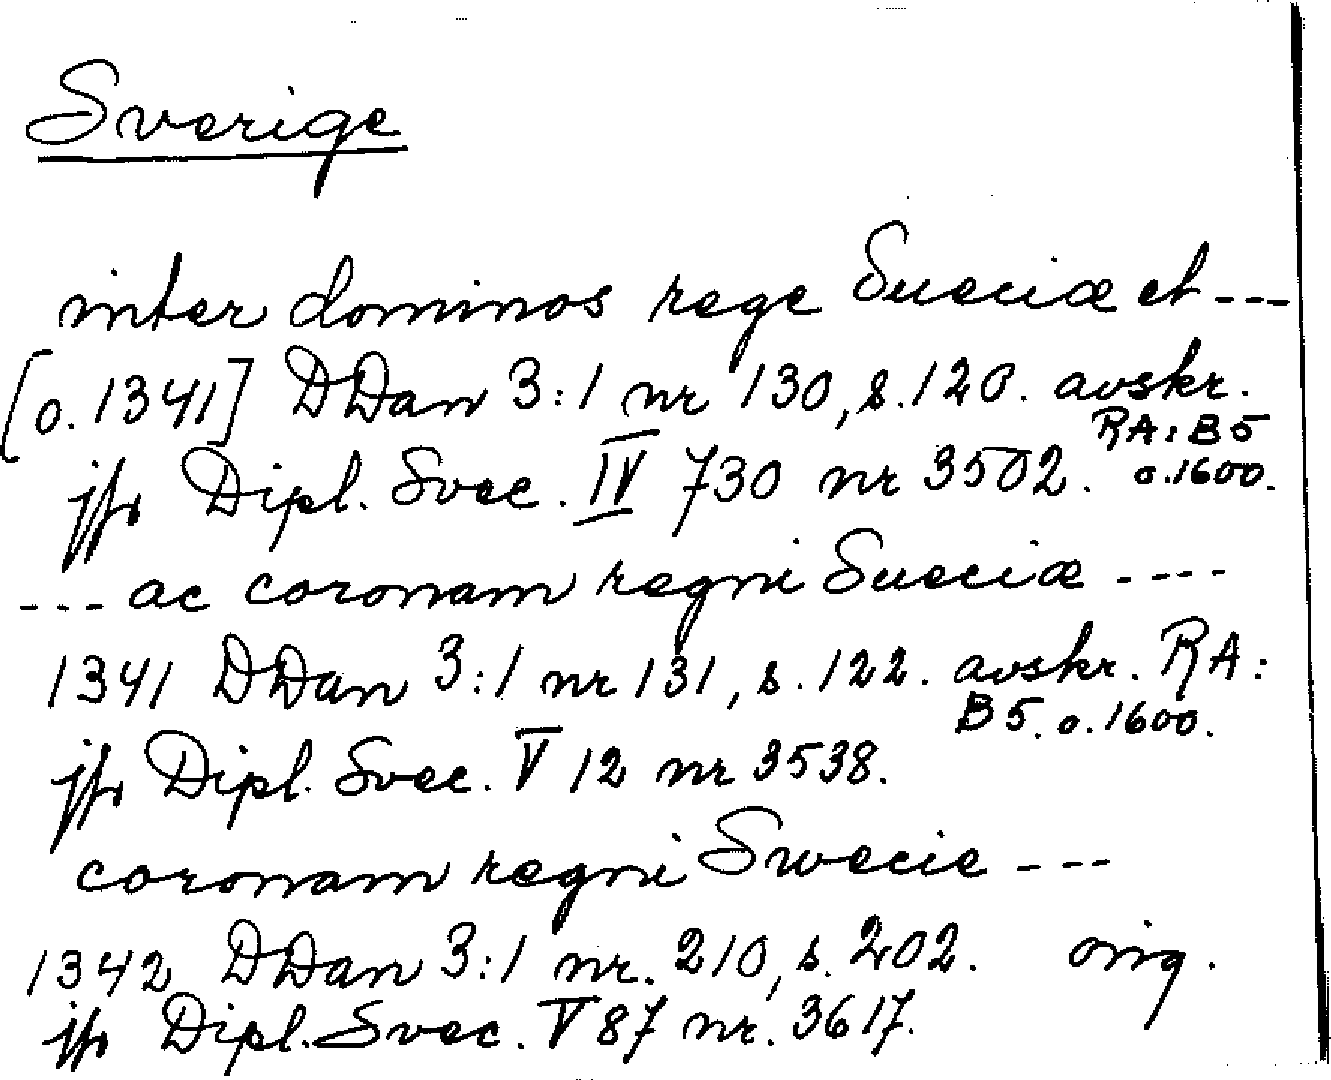 Sverige
inter dominos rege Sueciæ et ---
[o. 1341] DDan 3:1 nr 130, s. 120. avskr.
RA: B5
jfr Dipl. Svec. IV 730 nr 3502. o. 1600.
--- ac coronam regni Sueciæ ----
1341 DDan 3:1 nr 131, s. 122. avskr. RA:
B5. o. 1600.
jfr Dipl. Svec. V 12 nr 3538.
coronam regni Swecie ---
1342 DDan 3:1 nr. 210, s. 202. orig.
jfr Dipl. Svec. V 87 nr. 3617.